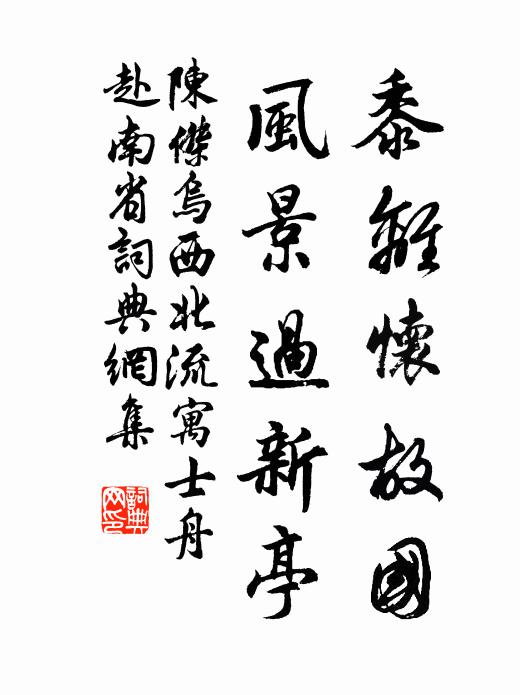 黍離懷故國
風景過新亭
陳傑烏西北流寓士舟
赴南省詞典網集
詞典网印